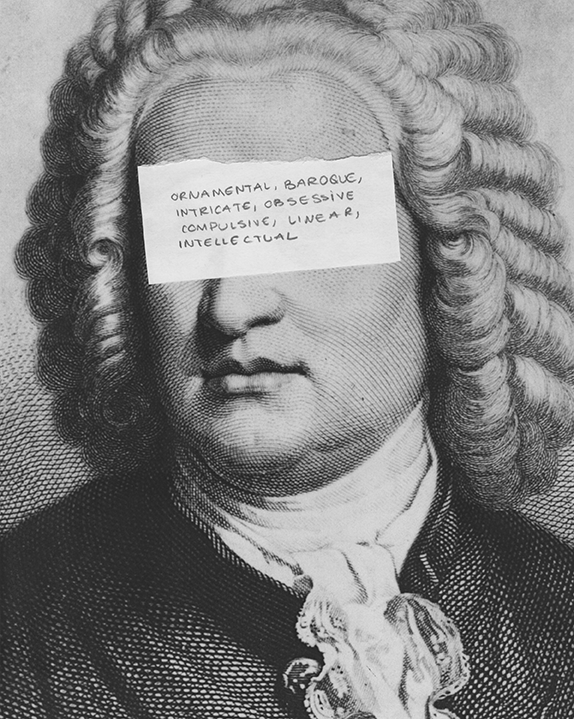 ORNAMENTAL, BAROQUE,
INTRICATE, OBSESSIVE
COMPULSIVE, LINEAR,
INTELLECTUAL